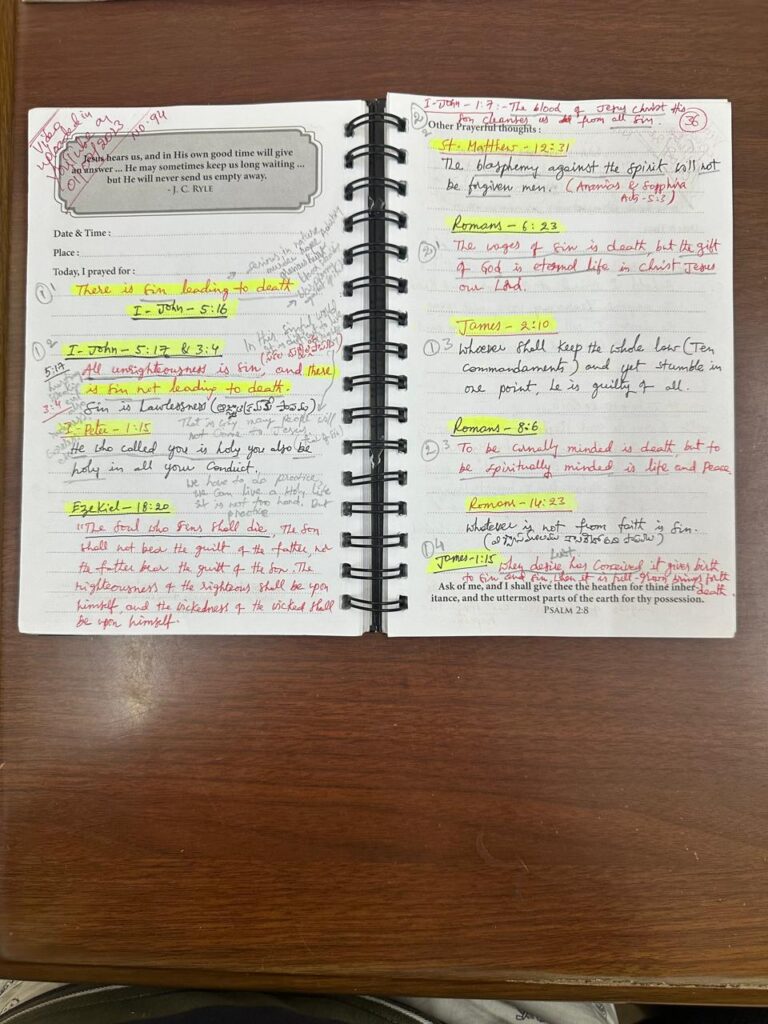 Video
uploaded in
YouTube on
NO: 94
Jesus hears us, and in His own good time will give
an answer ... He may sometimes keep us long waiting ...
but He will never send us empty away.
- J. C. Ryle
Date & Time :
Place :
Today, I prayed for :
① 1 There is Sin leading to death
I - John - 5:16
① 2 I - John - 5:17 & 3:4
5:17 All unrighteousness is Sin, and there
is Sin not leading to death.
3:4 Sin is Lawlessness
That is why many people will
not come to Jesus
I - Peter - 1:15
He who called you is holy you also be
holy in all your Conduct.
We have to do practice
We can live a Holy life
It is not too hard. But
practice
Ezekiel - 18:20
"The Soul who Sins shall die, The Son
shall not bear the guilt of the father, nor
the father bear the guilt of the Son. The
righteousness of the righteous shall be upon
himself, and the wickedness of the wicked shall
be upon himself.
I - John - 1:7 :- The blood of Jesus Christ His
Son cleanses us from all Sin. 36
② 2 Other Prayerful thoughts :
St. Matthew - 12:31
The blasphemy against the Spirit will not
be forgiven men. (Ananias & Sapphira
Acts - 5:3)
Romans - 6:23
② 1 The wages of Sin is death, but the gift
of God is eternal life in Christ Jesus
our Lord.
James - 2:10
① 3 Whoever shall keep the whole law (Ten
Commandaments) and yet stumble in
one point, he is guilty of all.
Romans - 8:6
② 3 To be carnally minded is death, but to
be spiritually minded is life and Peace.
Romans - 14:23
Whatever is not from faith is Sin.
① 4 James - 1:15 desire has Conceived it gives birth
to Sin and Sin, when it is full-grown brings forth
death
Ask of me, and I shall give thee the heathen for thine inher-
itance, and the uttermost parts of the earth for thy possession.
Psalm 2:8